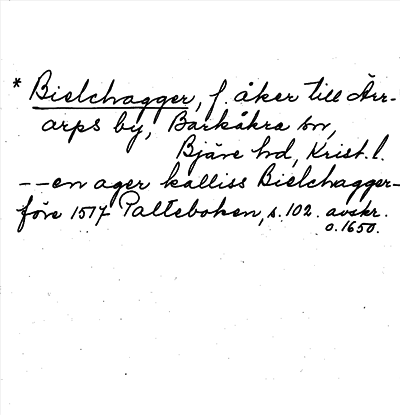 * Bielchagger, f. åker till Ärr-
arps by, Barkåkra sn,
Bjäre hd, Krist. l.
-- en ager kalliss Bielchagger-
före 1517 Palteboken, s. 102. avskr.
o. 1650.